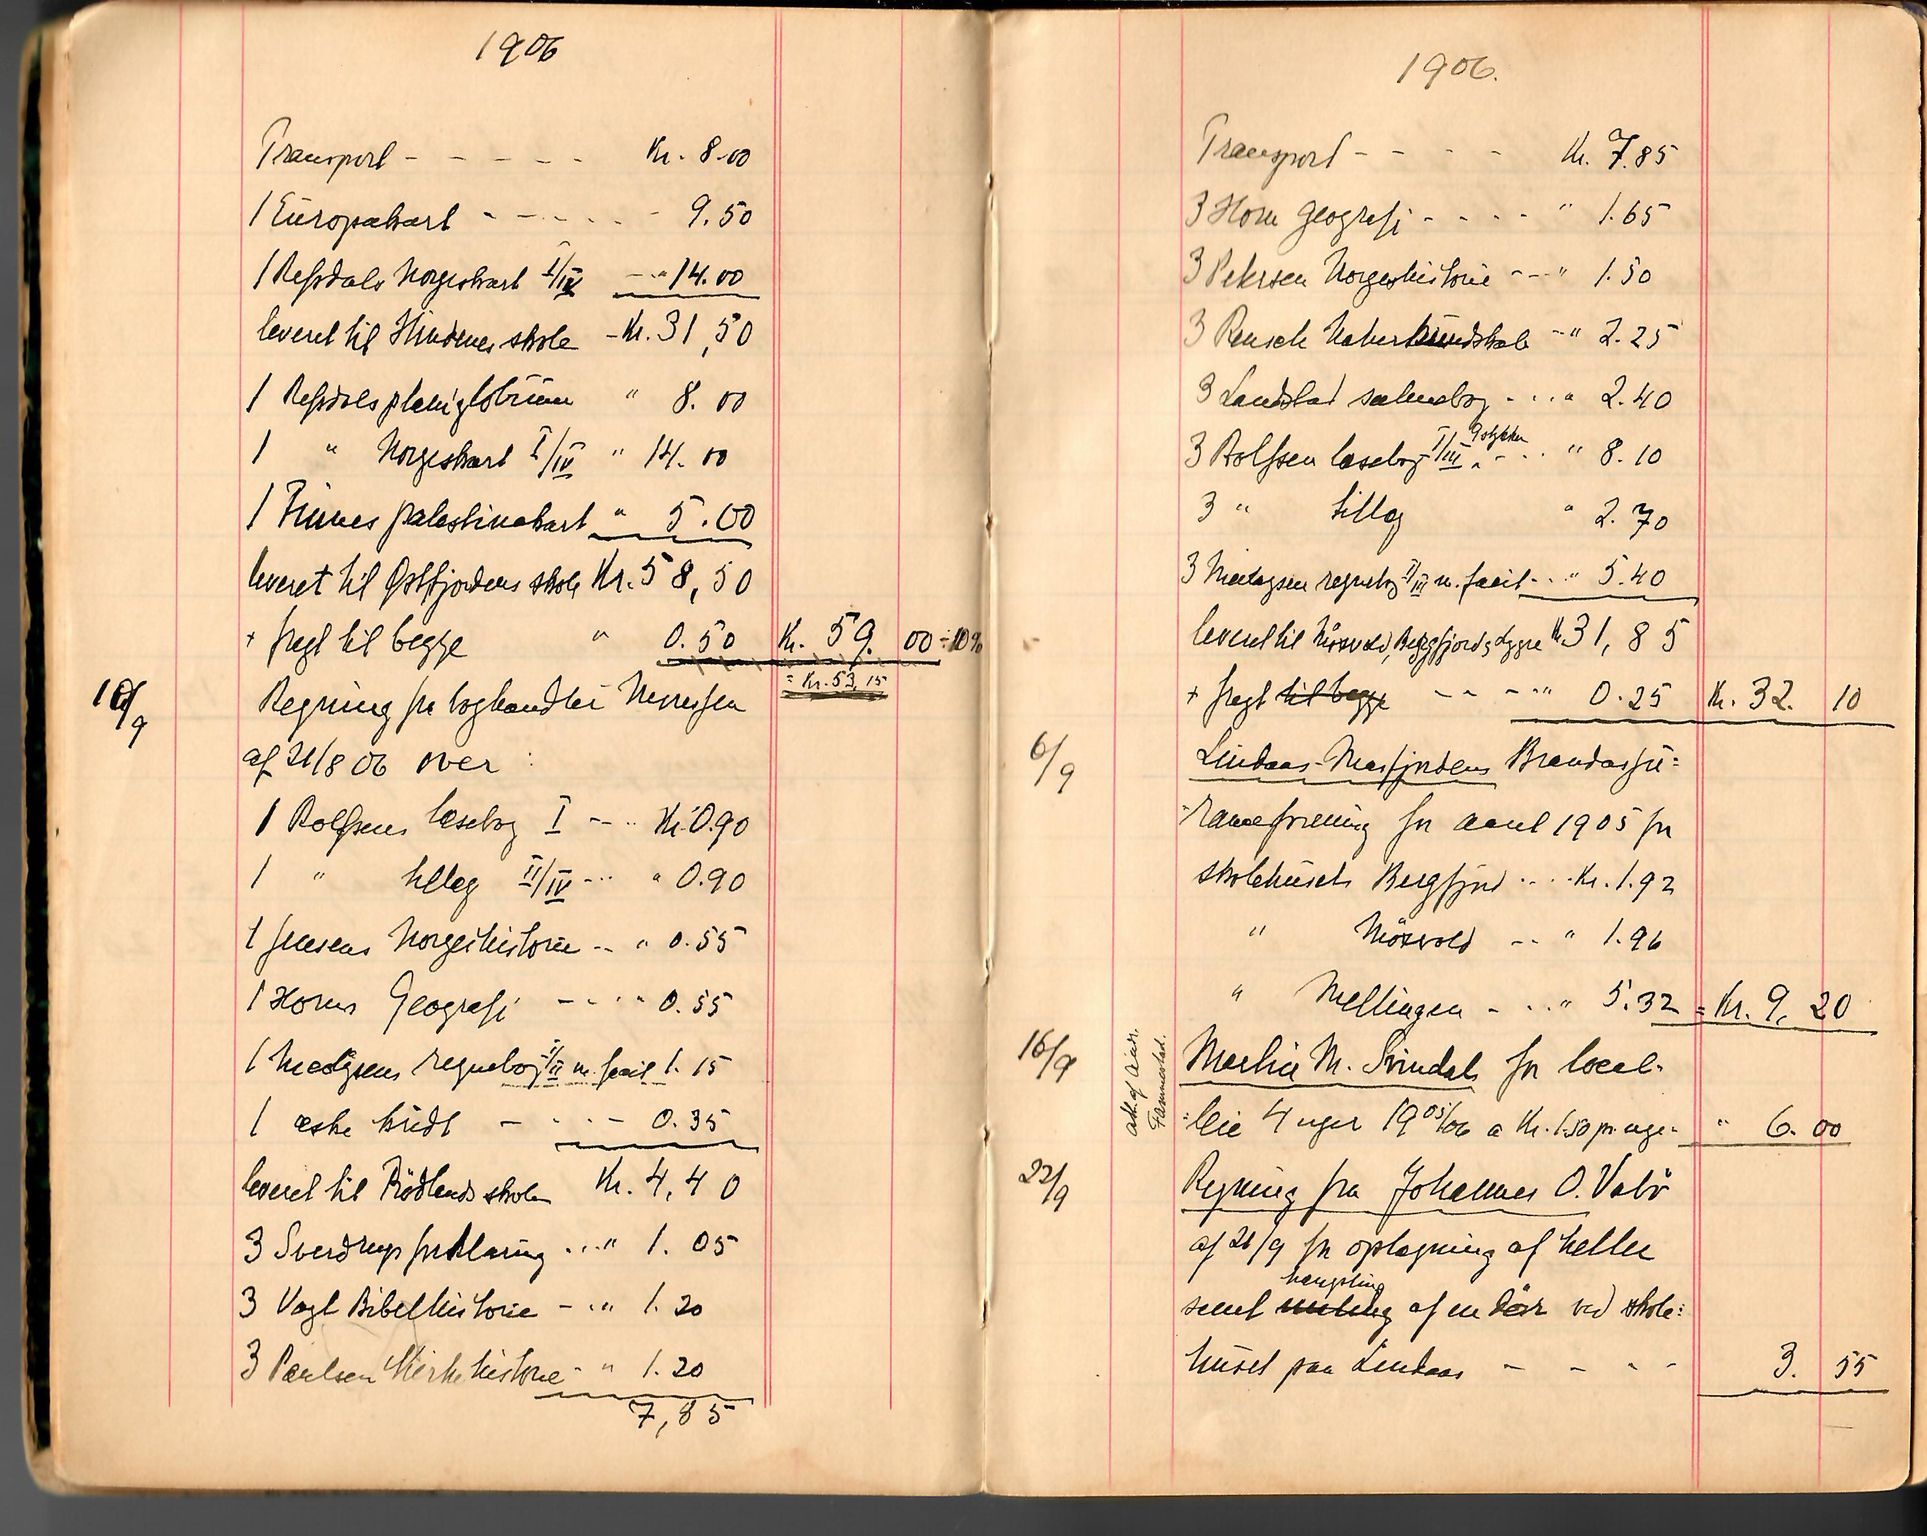 1906
Transport - - - - - Kr. 8.00
1 Europakart - - - - - 9.50
1 Refsdals Norgeskart I/IV - - " 14.00
leveret til Hindenes skole - Kr. 31,50
1 Refsdals planiglobium " 8.00
1 " Norgeskart I/IV " 14.00
1 Finnes palestinakart " 5.00
leveret til Østfjordens skole Kr. 58,50
+ fragt til begge " 0.50 Kr. 59. 00 ÷ 10%
= Kr. 53,15
/9 Regning fra boghandler
af 21/8 06 over :
1 Rolfsens læsebog I - - Kr. 0.90
1 " tillæg II/IV - - " 0.90
1 Jensens Norgeshistorie - - " 0.55
1 Horns Geografi - - - " 0.55
1 regnebog I/II m. facit 1.15
1 æske kridt - - - - 0.35
leveret til Rödlands skole Kr. 4,40
3 Sverdrup forklaring - - " 1.05
3 Vogt Bibelhistorie - - " 1.20
3 Poulsen Kirkehistorie - " 1.20
7,85
1906.
Transport - - - - Kr. 7.85
3 Horn geografi - - - - " 1.65
3 Petersen Norgeshistorie - - " 1.50
3 Reusch Naturkundskab - " 2.25
3 Landstad salmebog - - - " 2.40
3 Rolfsen læsebog I/III 9 stykker - - " 8.10
3 " tillæg " 2.70
3 regnebog II/III m. facit - - " 5.40
leveret til Bergfjord Kr. 31,85
+ fragt til begge - - - - " 0.25 Kr. 32. 10
6/9 Lindaas-Masfjordens Brandassu=
=ranceforening for aaret 1905 for
skolehuset Bergfjord - - - Kr. 1.92
" Nösvold - - " 1.96
" Mellingen - - - " 5.32 = Kr. 9, 20
16/9 Martin M. Svindal for local-
=leie 4 uger 1905/06 a Kr. 1.50 pr. uge - " 6. 00
22/9 Regning fra Johannes O. Vabö
af 21/9 for oplægning af heller
hængsling
samt af en dör ved skole=
huset paa Lindaas - - - - 3. 55